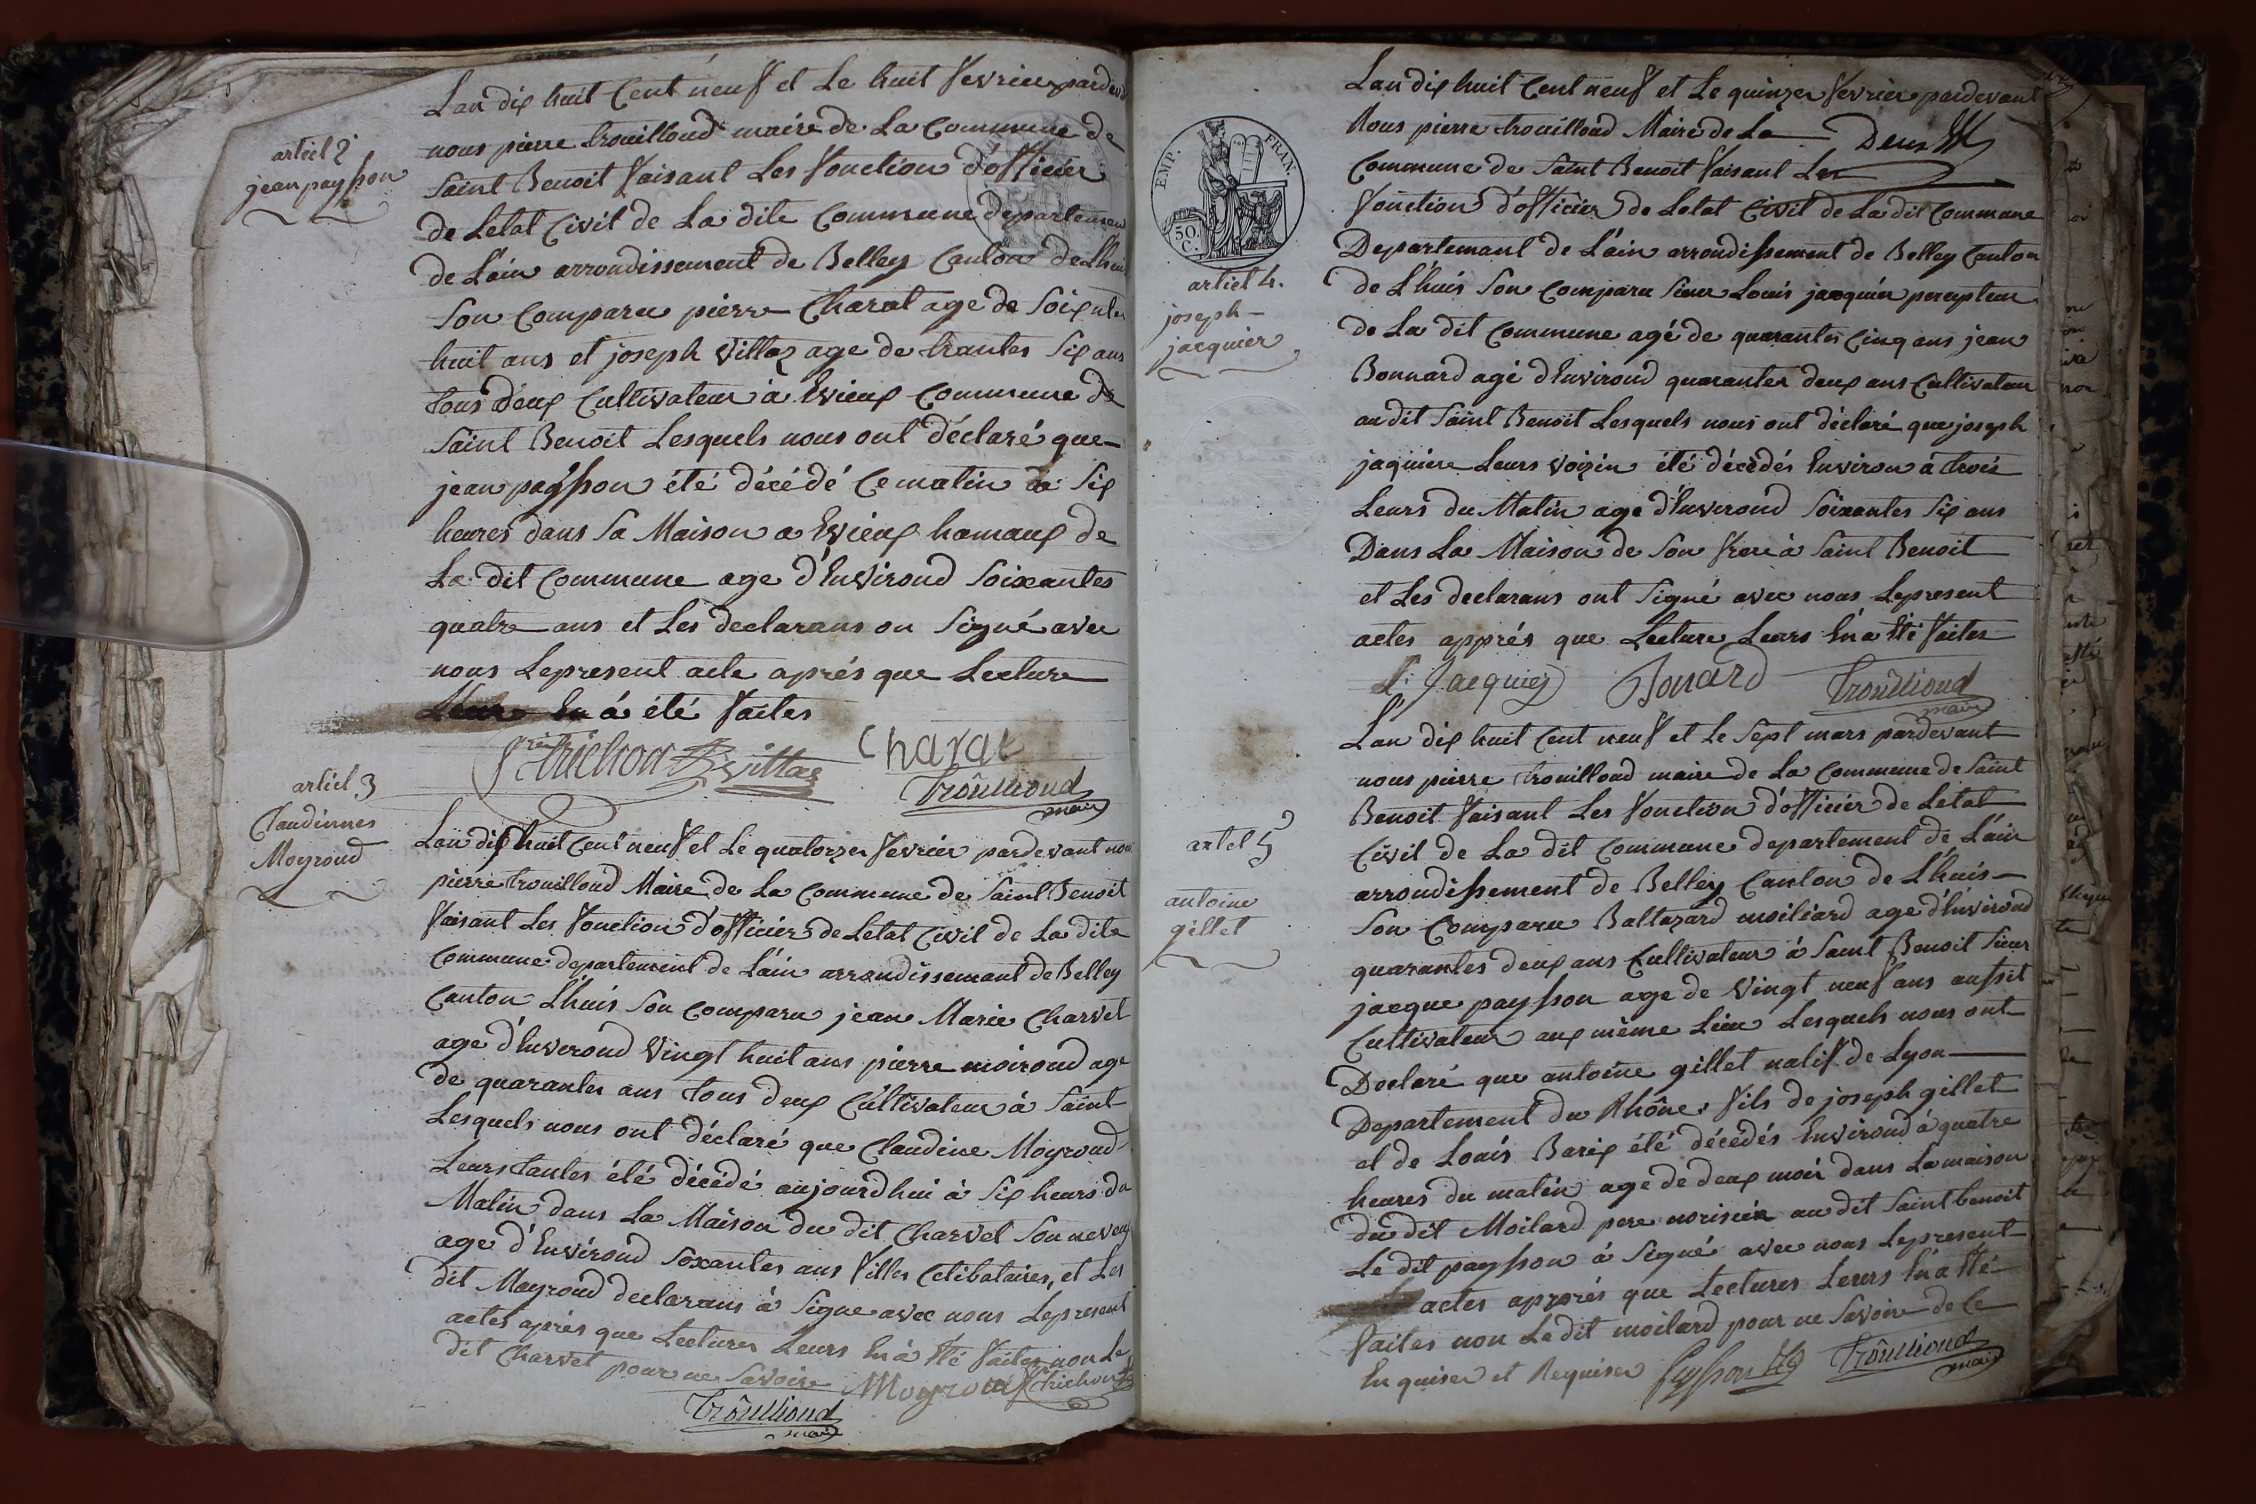 articl 2
jean paysson
Lan dix huit Cent neuf et Le huit fevrier pardev
nous pierre trouilloud maire de La Commune de
Saint Benoit faisant Les fonction d'officier
de Letat Civil de La dite Commune departemen
de L'ain arrondissement de Belley Canton de Lhui
Son Comparu pierre Charat age de Soixante
huit ans et joseph Villaz age de trantes Six ans
tous deux Cultivateur à Evieux Commune de
Saint Benoit Lesquels nous ont déclaré que
jean paysson été décédé Ce matin a Six
heures dans Sa Maison a Evieux hamaux de
La dit Commune age d'Environd Soixantes
quatre ans et Les declarans on Signé avec
nous Lepresent acte aprés que Lecture
Leurs En á été faites
Trichon Villaz Charat
Trouilloud
maire
articl 3
Claudinnes
Moyroud
Lan dix huit Cent neuf et Le quatorzes fevrier pardevant nou
pierre trouilloud Maire de La Commune de Saint Benoit
faisant Les fonction d'officier de Letat Civil de La dite
Commune departement de L'ain arrondissemant de Belley
Canton L'huis Son Comparu jean Marie Charvet
age d'Environd Vingt huit ans pierre moiroud age
de quarantes ans tous deux Cultivateur à Saint
Lesquels nous ont déclaré que Claudine Moyroud
Leurs tantes été décédé aujourdhui à Six heurs du
Matin dans La Maison du dit Charvet Son neveux
age d'Environd Soxantes ans filles Celibataires, et Les
dit Moyroud declarans à Signe avec nous Lepresent
actes aprés que Lectures Leurs En á été faites non Le
dit Charvet pour ne Savoire Moyroud Trichon
Trouilloud
maire
EMP. FRAN.
50. C.
articl 4.
joseph
jacquier
Lan dix huit Cent neuf et Le quinzes fevrier pardevant
Nous pierre trouilloud Maire de La Deux
Commune de Saint Benoit faisant Les
fonction d'officier de Letat Civil de La dit Commune
Departemant de L'ain arrondissement de Belley Canton
de L'huis Son Comparu Sieur Louis jacquier percepteur
de La dit Commune agé de quarantes Cinq ans jean
Bonnard agé d'Environd quarantes deux ans Cultivateur
au dit Saint Benoit Lesquels nous ont déclaré que joseph
jaquiere Leurs voizin été décédés Environ à trois
Leurs du Matin age d'Environd Soixantes Six ans
Dans La Maison de Son frere à Saint Benoit
et Les declarans ont Signé avec nous Lepresent
actes apprés que Lecture Leurs En a été faites
L. Jacquier Bonard Trouilloud
maire
artel 5
antoine
gillet
L'an dix huit Cent neuf et Le Sept mars pardevant
nous pierre trouilloud maire de La Commune de Saint
Benoit faisant Les fonction d'officier de Letat
Civil de La dit Commune departement de L'ain
arrondissement de Belley Canton de L'huis
Son Comparu Baltazard moiliard age d'Environd
quarantes deux ans Cultivateur à Saint Benoit Sieur
jacque paysson age de Vingt neuf ans aussit
Cultivateur aux même Lieu Lesquels nous ont
Declaré que antoine gillet natif de Lyon
Departement du Rhône, fils de joseph gillet
et de Louis Barix été décédés Environd à quatre
heures du matin age de deux moir dans La maison
du dit Moilard pere norisier au dit Saint benoit
Le dit paysson à Signé avec nous Lepresent
actes apprés que Lectures Leurs En a été
faites non Le dit moilard pour ne Savoire de Ce
En quiser et Requiser paysson Trouilloud
maire